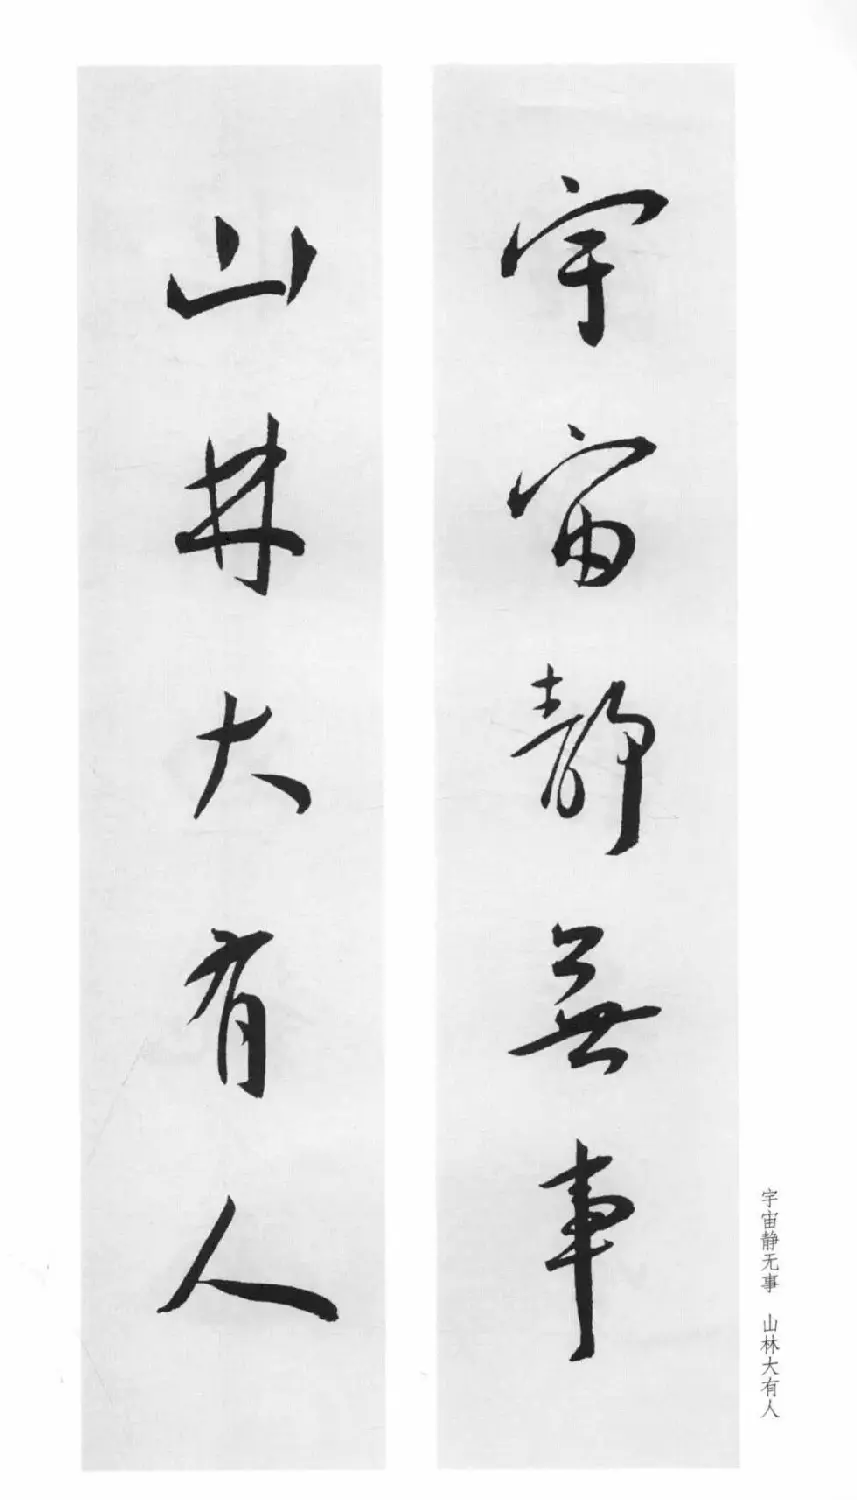 宇宙静無事
山林大有人
宇宙静无事 山林大有人